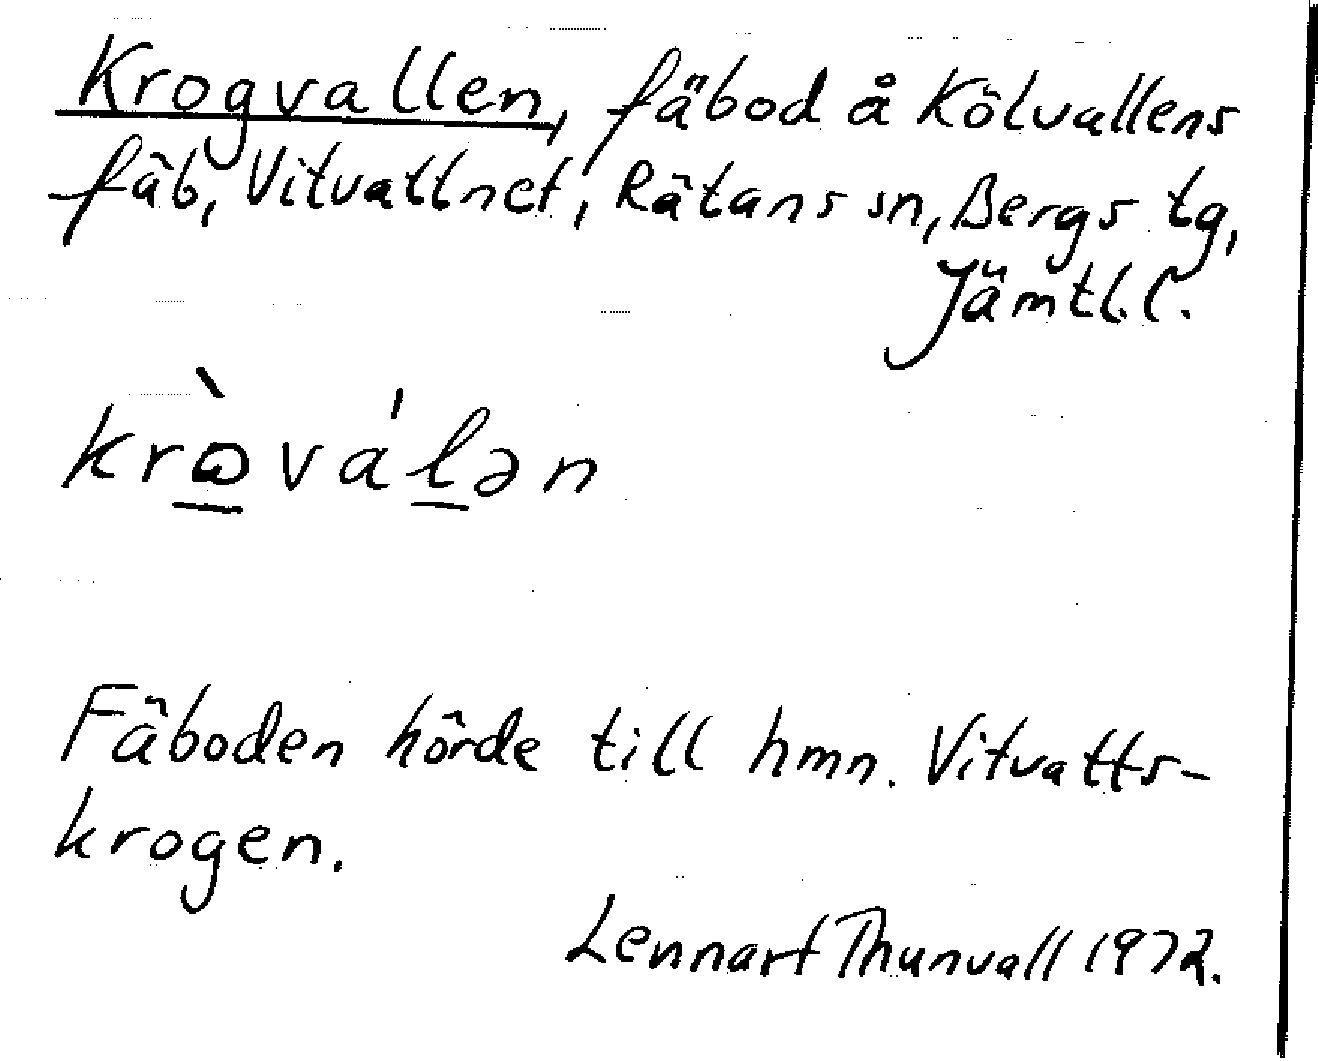 Krogvallen, fäbod å Kölvallens
fäb, Vitvattnet, Rätans sn, Bergs tg,
Jämtl.l.
kròválən
Fäboden hörde till hmn. Vitvatts-
krogen.
Lennart Thunvall 1972.